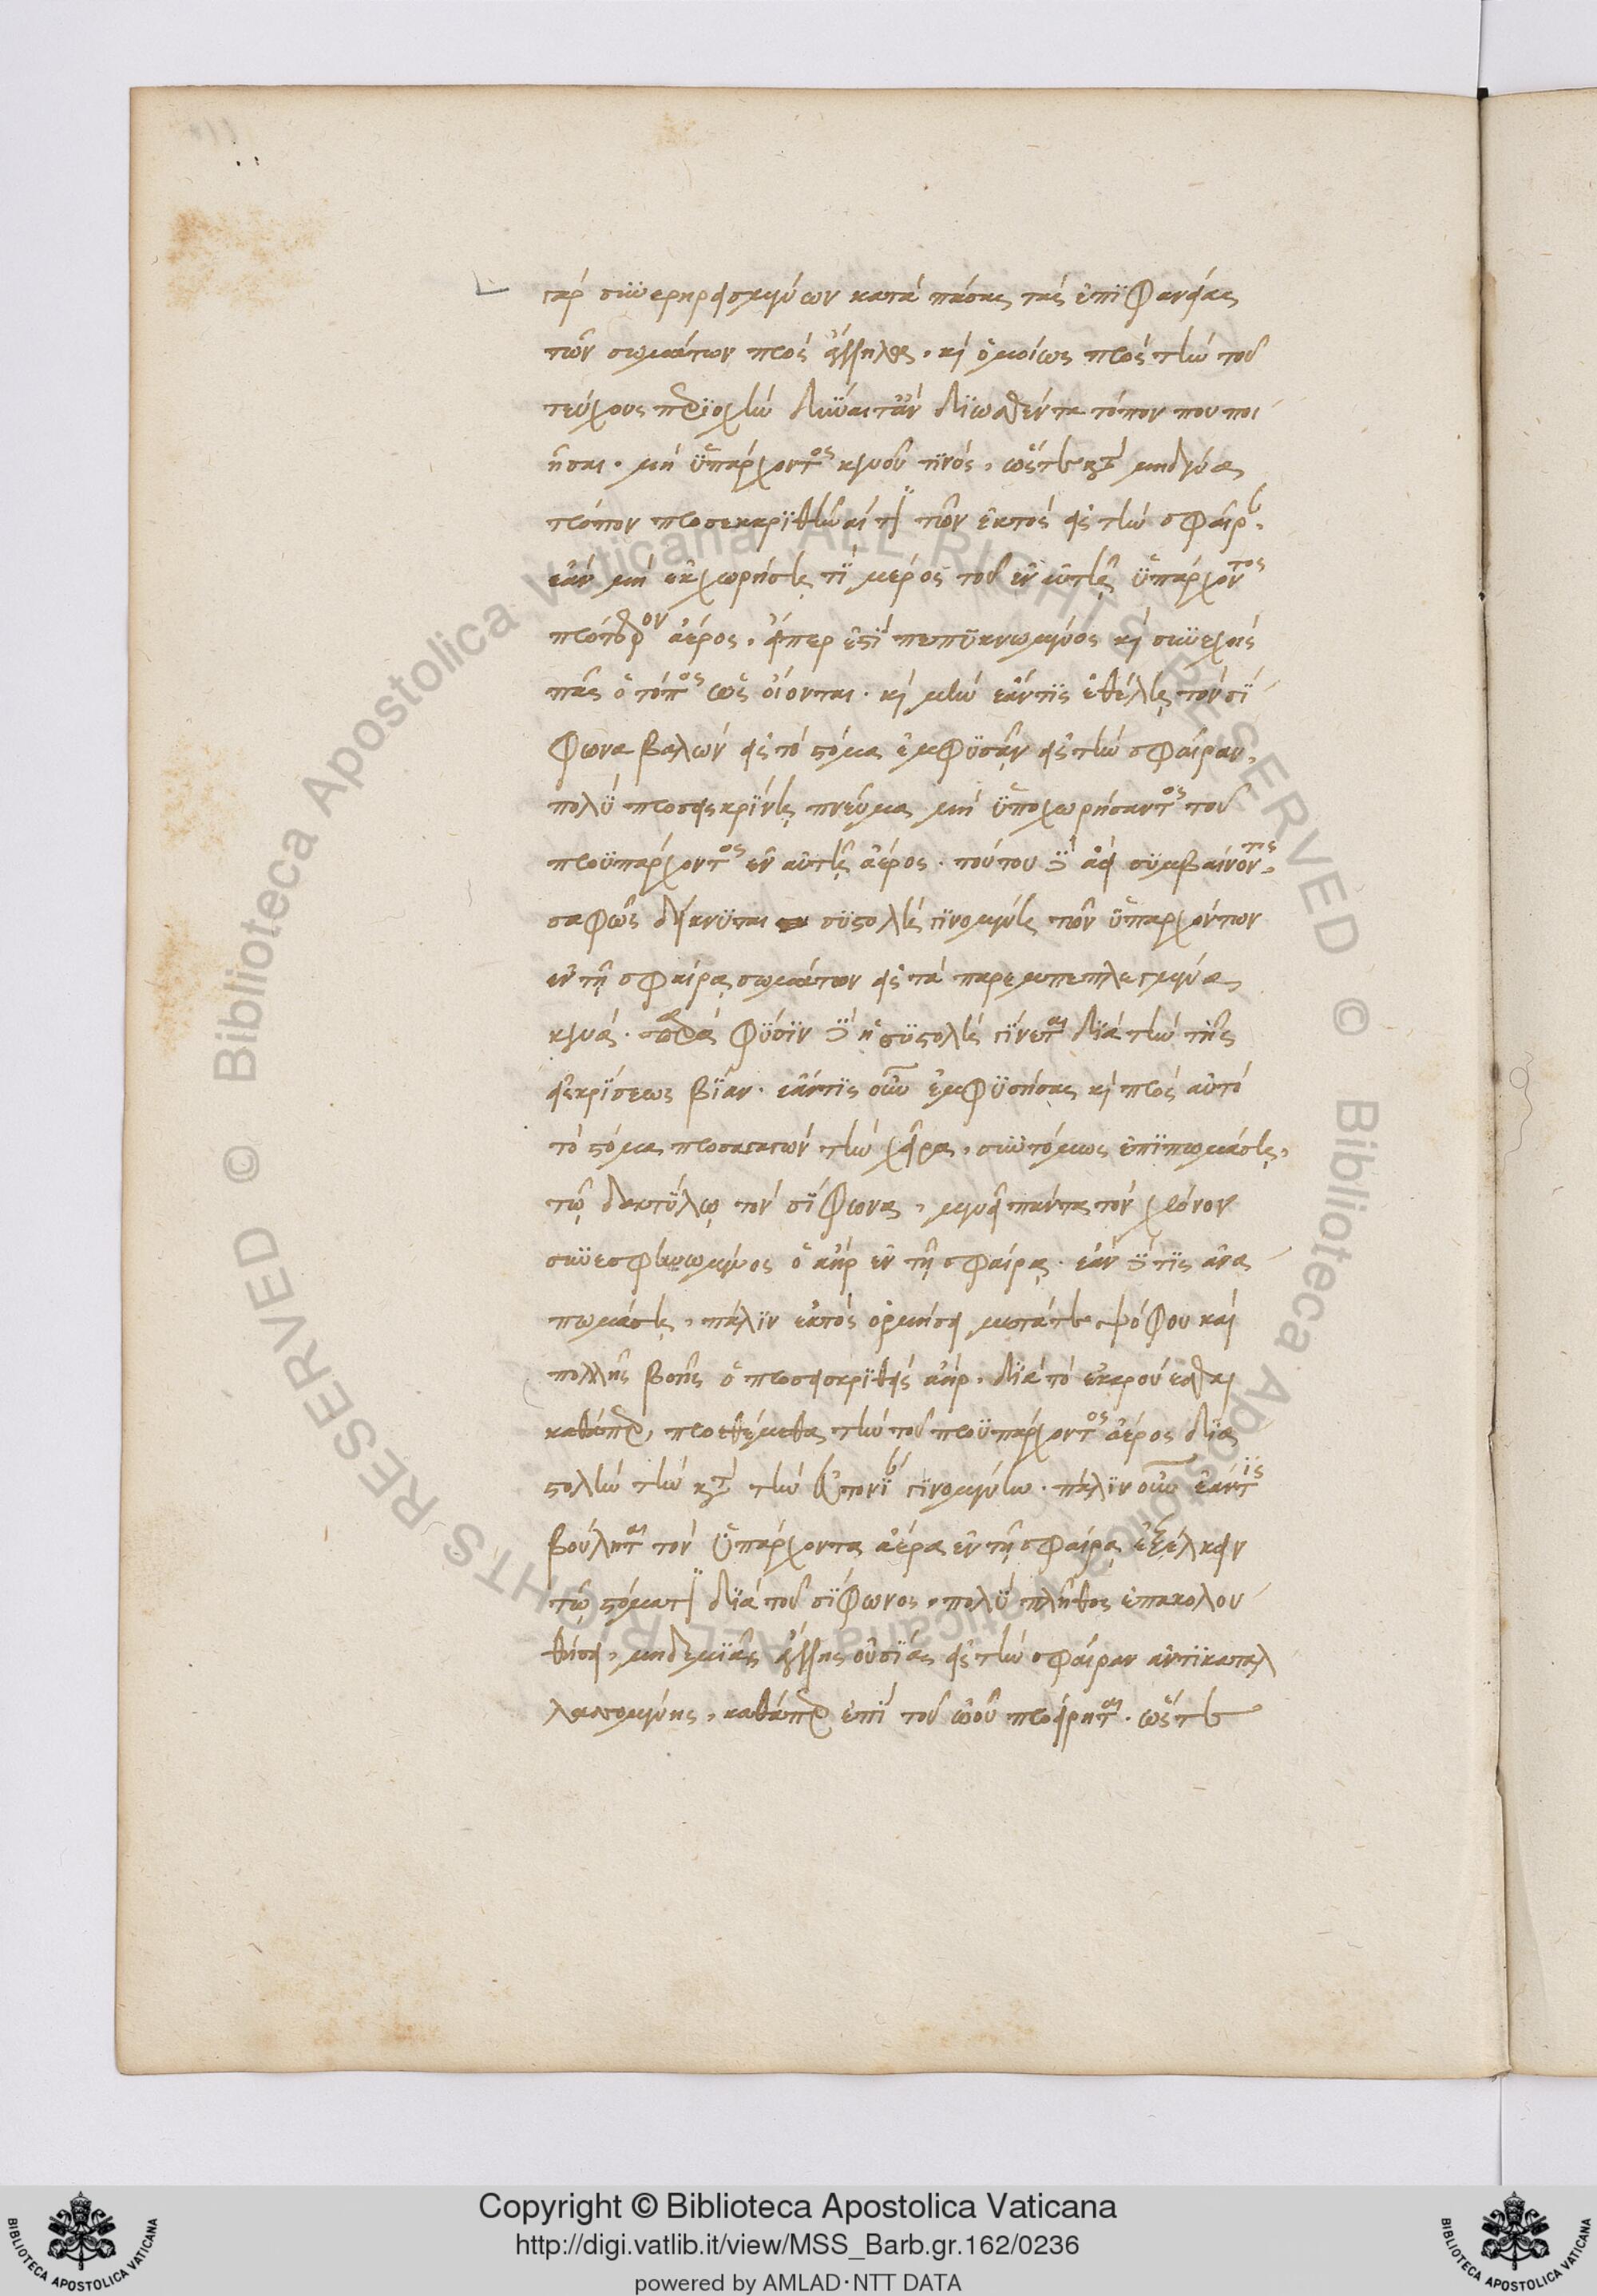 γὰρ συνερηρεισμένων κατὰ πάσας τὰς ἐπϊφανείας
τῶν σωμάτων πρὸς ἄλληλα, καὶ ὁμοίως πρὸς τὴν τοῦ
τεύχους περϊοχὴν δύναιτ' ἂν δϊωσθέντα τόπον που ποι
ῆσαι· μὴ ὑπάρχοντος κενοῦ τϊνός, ὥστε κατὰ μηδένα
τρόπον προσεκκρϊθῆναί τϊ τῶν ἐκτὸς εἰς τὴν σφαῖραν,
ἐὰν μὴ ἐκχωρήσῃ τϊ μέρος τοῦ ἐν αὐτῇ ὑπάρχοντος
πρότερον ἀέρος, εἴπερ ἐστὶ πεπϋκνωμένος καὶ συνεχὴς
πᾶς ὁ τόπος ὡς οἴονται· καὶ μὴν ἐάν τϊς ἐθέλῃ τὸν σί
φωνα βαλὼν εἰς τὸ στόμα ἐμφϋσᾶν εἰς τὴν σφαῖραν,
πολὺ προσεικρϊνεῖ πνεῦμα μὴ ὑποχωρήσαντος τοῦ
προϋπάρχοντος ἐν αὐτῇ ἀέρος· τούτου δὲ ἀεὶ συμβαίνοντος,
σαφῶς δείκνυται συστολὴ γϊνομένη τῶν ὑπαρχόντων
ἐν τῇ σφαίρᾳ σωμάτων εἰς τὰ παρεμπεπλεγμένα
κενά· παρὰ φύσϊν δὲ ἡ συστολὴ γίνεται δϊὰ τὴν τῆς
εἰσκρίσεως βίαν· ἐάν τϊς οὖν ἐμφϋσήσας καὶ πρὸς αὐτὸ
τὸ στόμα προσαγαγὼν τὴν χεῖρα, συντόμως ἐπϊπωμάσῃ,
τῷ δακτύλῳ τὸν σίφωνα, μενεῖ πάντα τὸν χρόνον
συνεσφϊγμένος ὁ ἀὴρ ἐν τῇ σφαίρᾳ· ἐὰν δέ τϊς ἀνα
πωμάσῃ, πάλϊν ἐκτὸς ὁρμήσει μετά τε ψόφου καὶ
πολλῆς βοῆς ὁ προσεισκρϊθεὶς ἀὴρ, δϊὰ τὸ ἐκκρούεσθαι
καθάπερ προεθέμεθα τὴν τοῦ προϋπάρχοντος ἀέρος δϊα
στολὴν τὴν κατὰ τὴν εὐτονίαν γϊνομένην· πάλϊν οὖν ἐάν τϊς
βούληται τὸν ὑπάρχοντα ἀέρα ἐν τῇ σφαίρᾳ ἐξέλκειν
τῷ στόματϊ δϊὰ τοῦ σίφωνος, πολὺ πλῆθος ἐπακολου
θήσει, μηδεμϊᾶς ἄλλης οὐσίας εἰς τὴν σφαῖραν ἀντϊκαταλ
λασσομένης, καθάπερ ἐπὶ τοῦ ὠοῦ προείρηται· ὥστε
Copyright © Biblioteca Apostolica Vaticana
http://digi.vatlib.it/view/MSS_Barb.gr.162/0236
powered by AMLAD·NTT DATA